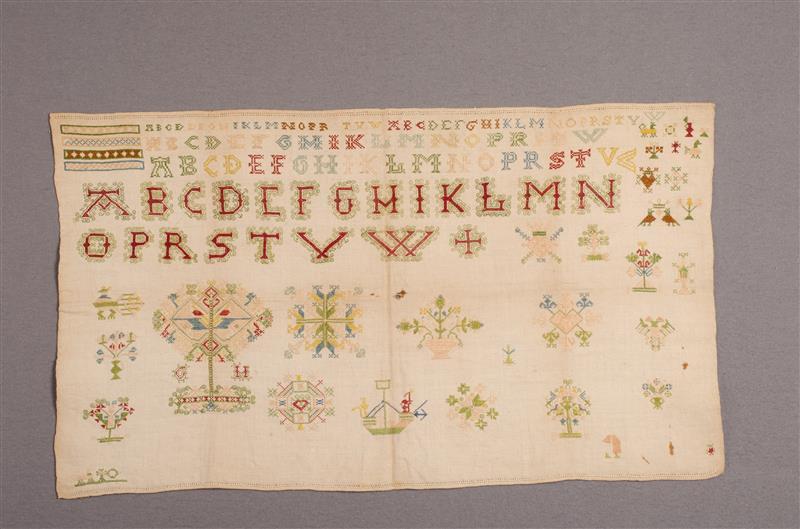 ABCD EFGH IKLM NOPR TVW ABCDEFGHIKLM NOPRSTVW
ABCDEFGHIKLMNOPR
ABCDEFGHIKLMNOPRSTVW
ABCDEFGHIKLMN
OPRSTVW
G H